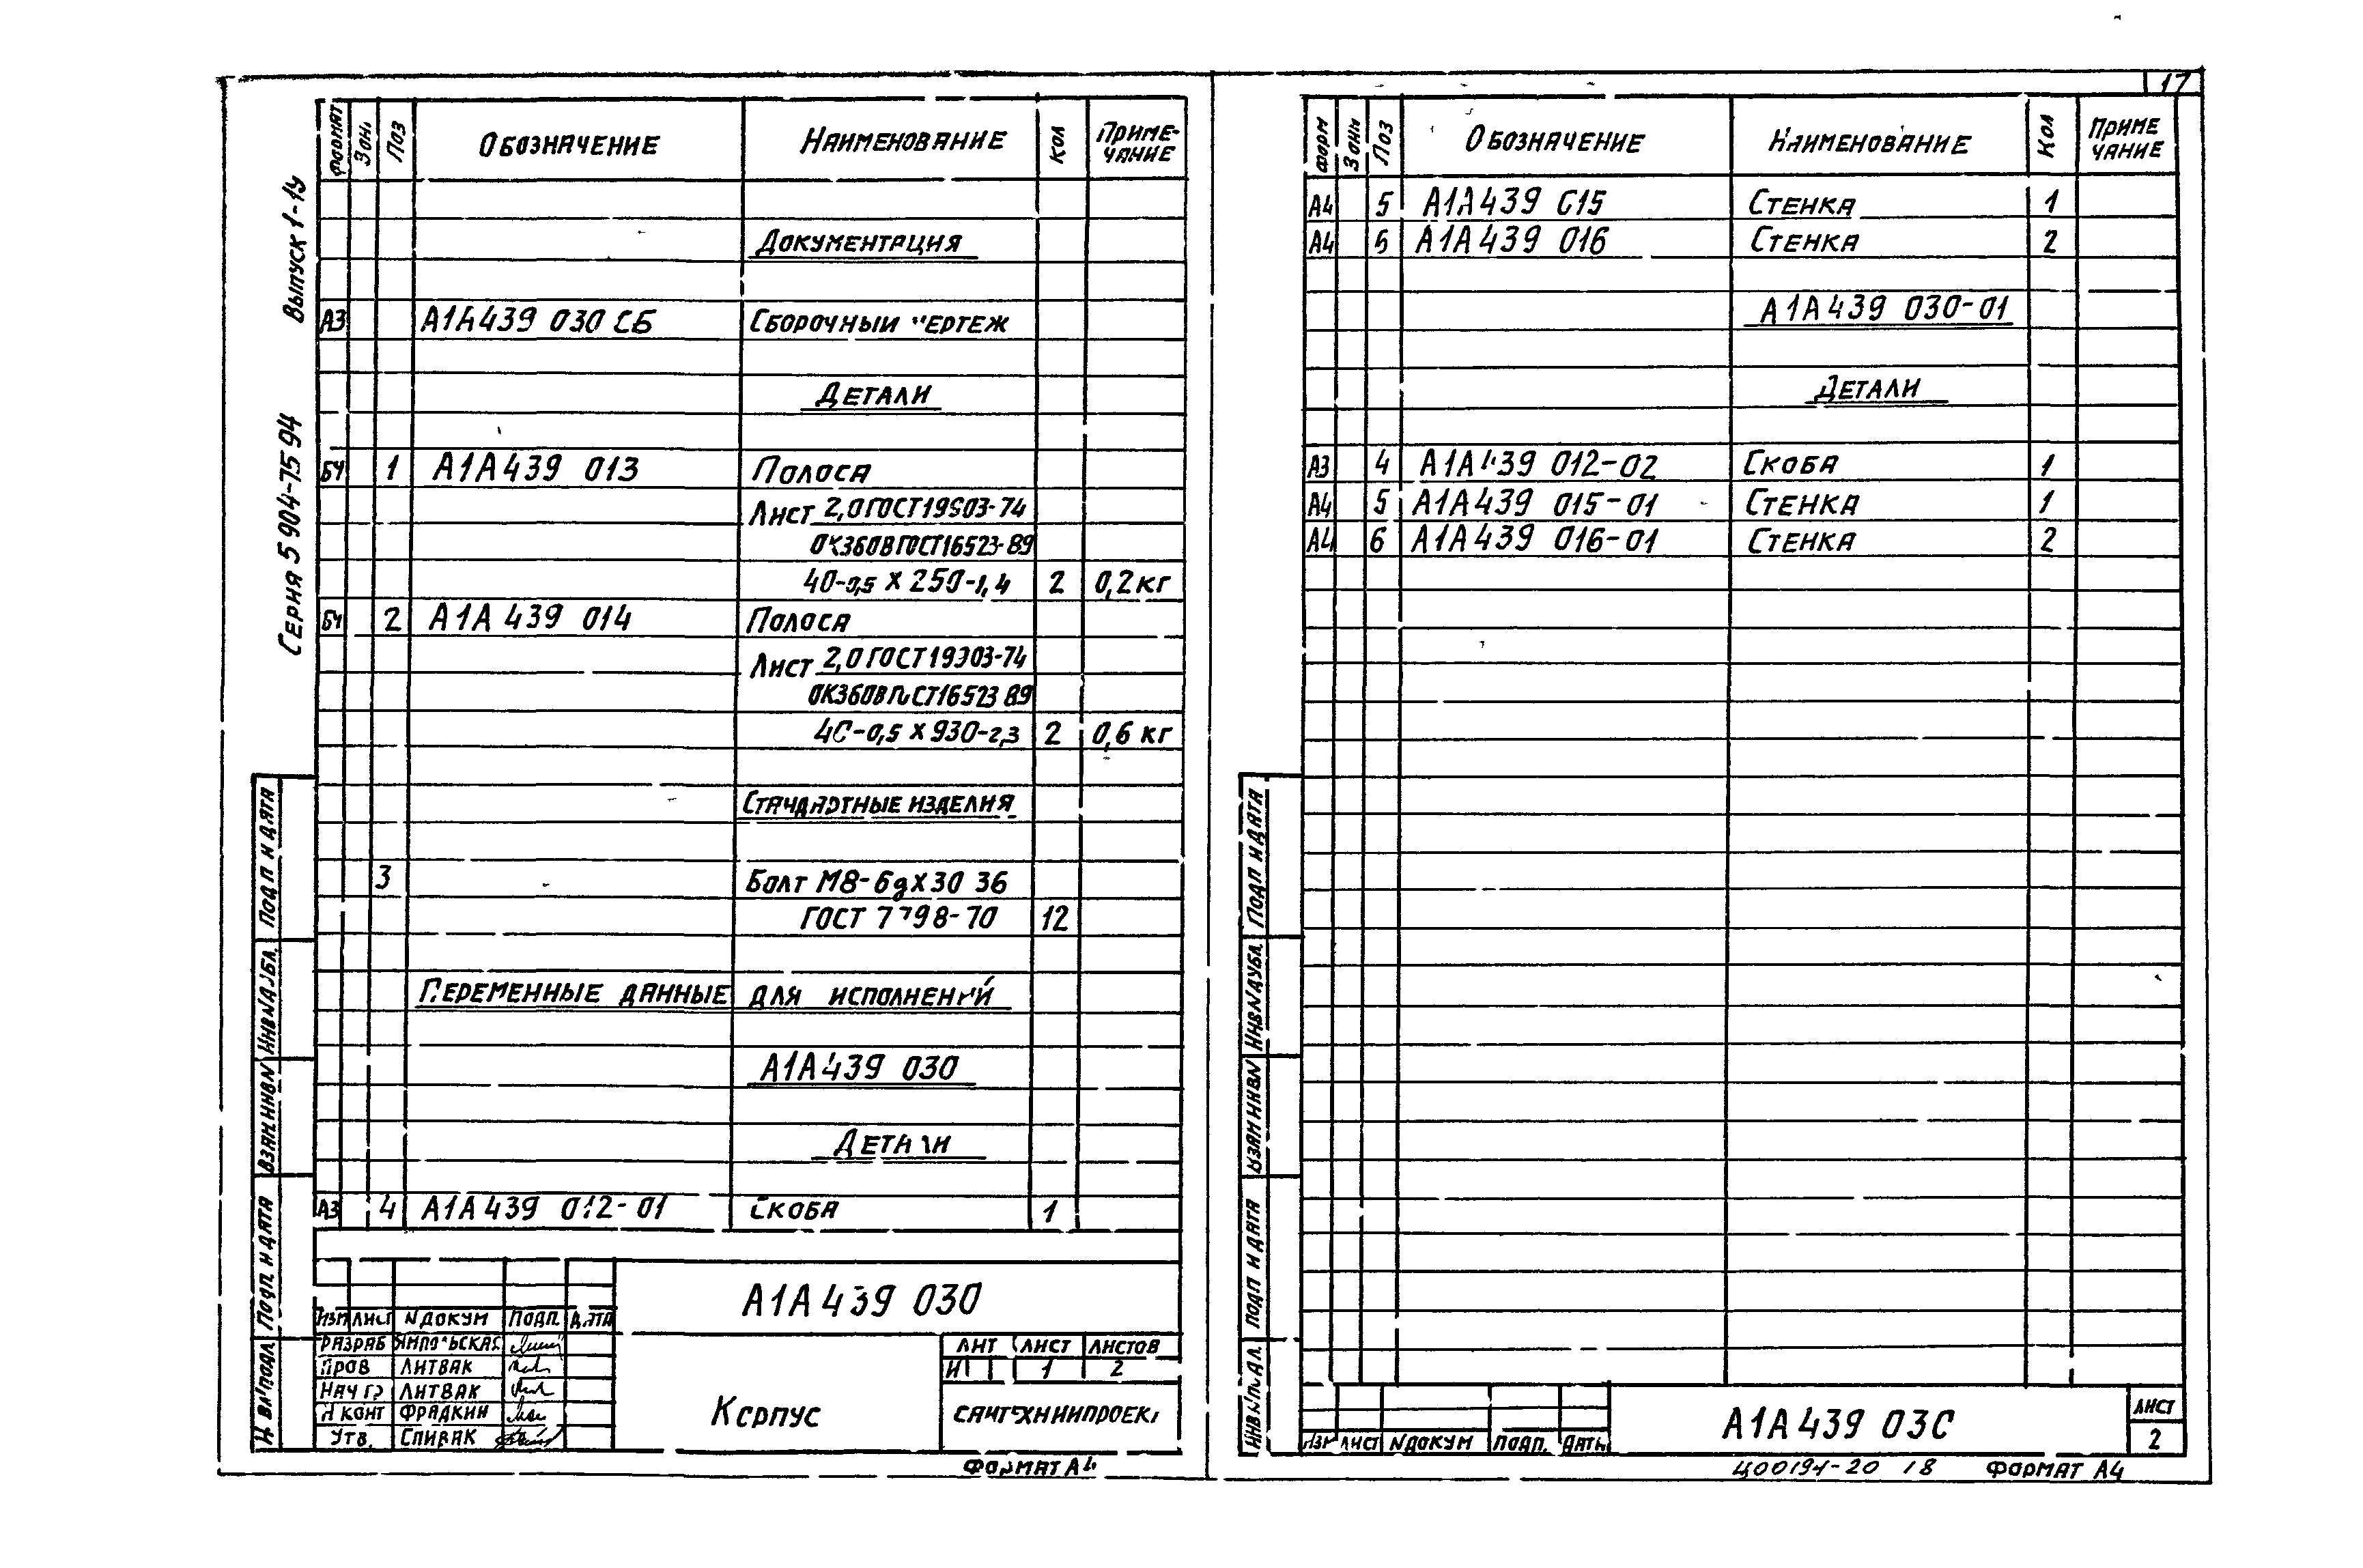 17
Выпуск 1-19
Серия 5 904-75 94
Формат Зона Поз Обозначение Наименование Кол Примечание
Документация
А3 А1А439 030 СБ Сборочный чертеж
Детали
БЧ 1 А1А439 013 Полоса
Лист 2,0 ГОСТ 19903-74
ОК360В ГОСТ 16523-89
40-0,5 х 250-1,4 2 0,2 кг
БЧ 2 А1А 439 014 Полоса
Лист 2,0 ГОСТ 19903-74
ОК360В ГОСТ 16523 89
40-0,5 х 930-2,3 2 0,6 кг
Стандартные изделия
3 Болт М8-6gх30 36
ГОСТ 7798-70 12
Переменные данные для исполнений
А1А439 030
Детали
А3 4 А1А439 012-01 Скоба 1
А1А439 030
Изм Лист N докум Подп. Дата
Разраб Ямпольская
Пров Литвак
Нач гр Литвак
Н конт Фрадкин
Утв. Спивак
Корпус
Лит Лист Листов
И 1 2
Сантехниипроект
Формат А4
Подп и дата
Инв N дубл.
Взам инв N
Подп. и дата
Инв N подл
Форм Зона Поз Обозначение Наименование Кол Примечание
А4 5 А1А439 015 Стенка 1
А4 6 А1А439 016 Стенка 2
А1А439 030-01
Детали
А3 4 А1А439 012-02 Скоба 1
А4 5 А1А439 015-01 Стенка 1
А4 6 А1А439 016-01 Стенка 2
Подп и дата
Инв N дубл.
Взам инв N
Подп и дата
Инв N подл.
Изм Лист N докум Подп. Дата
А1А439 030
Лист
2
Ц00194-20 18 Формат А4